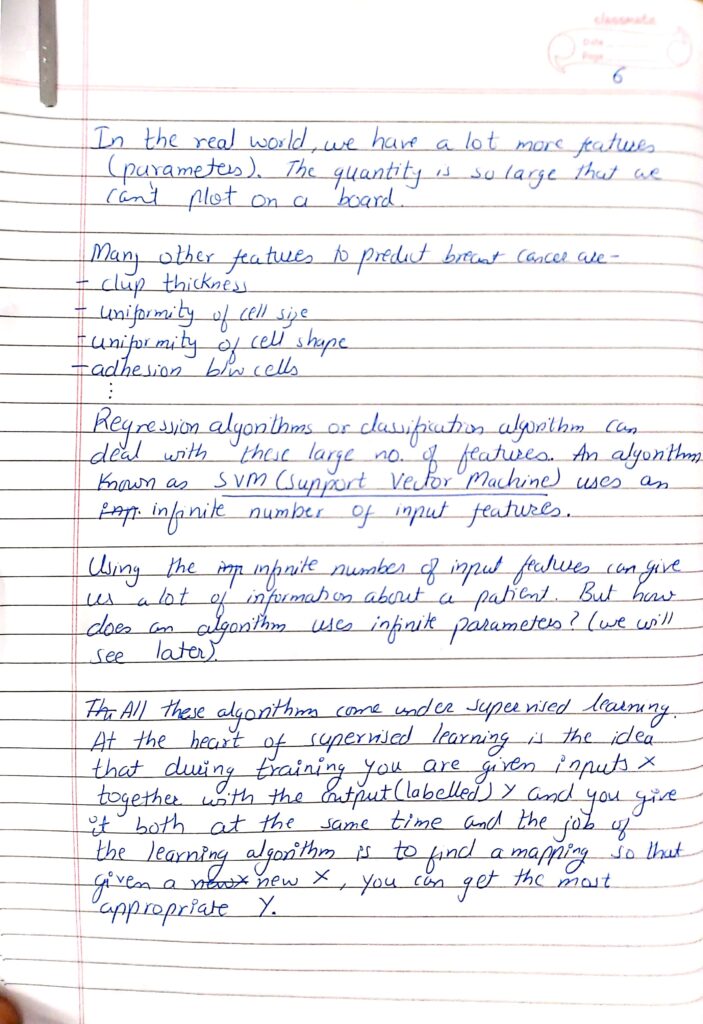 classmate
Date
Page
6
In the real world, we have a lot more features
(parameters). The quantity is so large that we
can't plot on a board.
Many other features to predict breast cancer are -
- clup thickness
- uniformity of cell size
- uniformity of cell shape
- adhesion b/w cells
⋮
Regression algorithms or classification algorithm can
deal with these large no. of features. An algorithm
known as SVM (Support Vector Machine) uses an
infinite number of input features.
Using the infinite number of input features can give
us a lot of information about a patient. But how
does an algorithm uses infinite parameters? (we will
see later).
All these algorithms come under supervised learning.
At the heart of supervised learning is the idea
that during training you are given inputs X
together with the output (labelled) Y and you give
it both at the same time and the job of
the learning algorithm is to find a mapping so that
given a new X, you can get the most
appropriate Y.